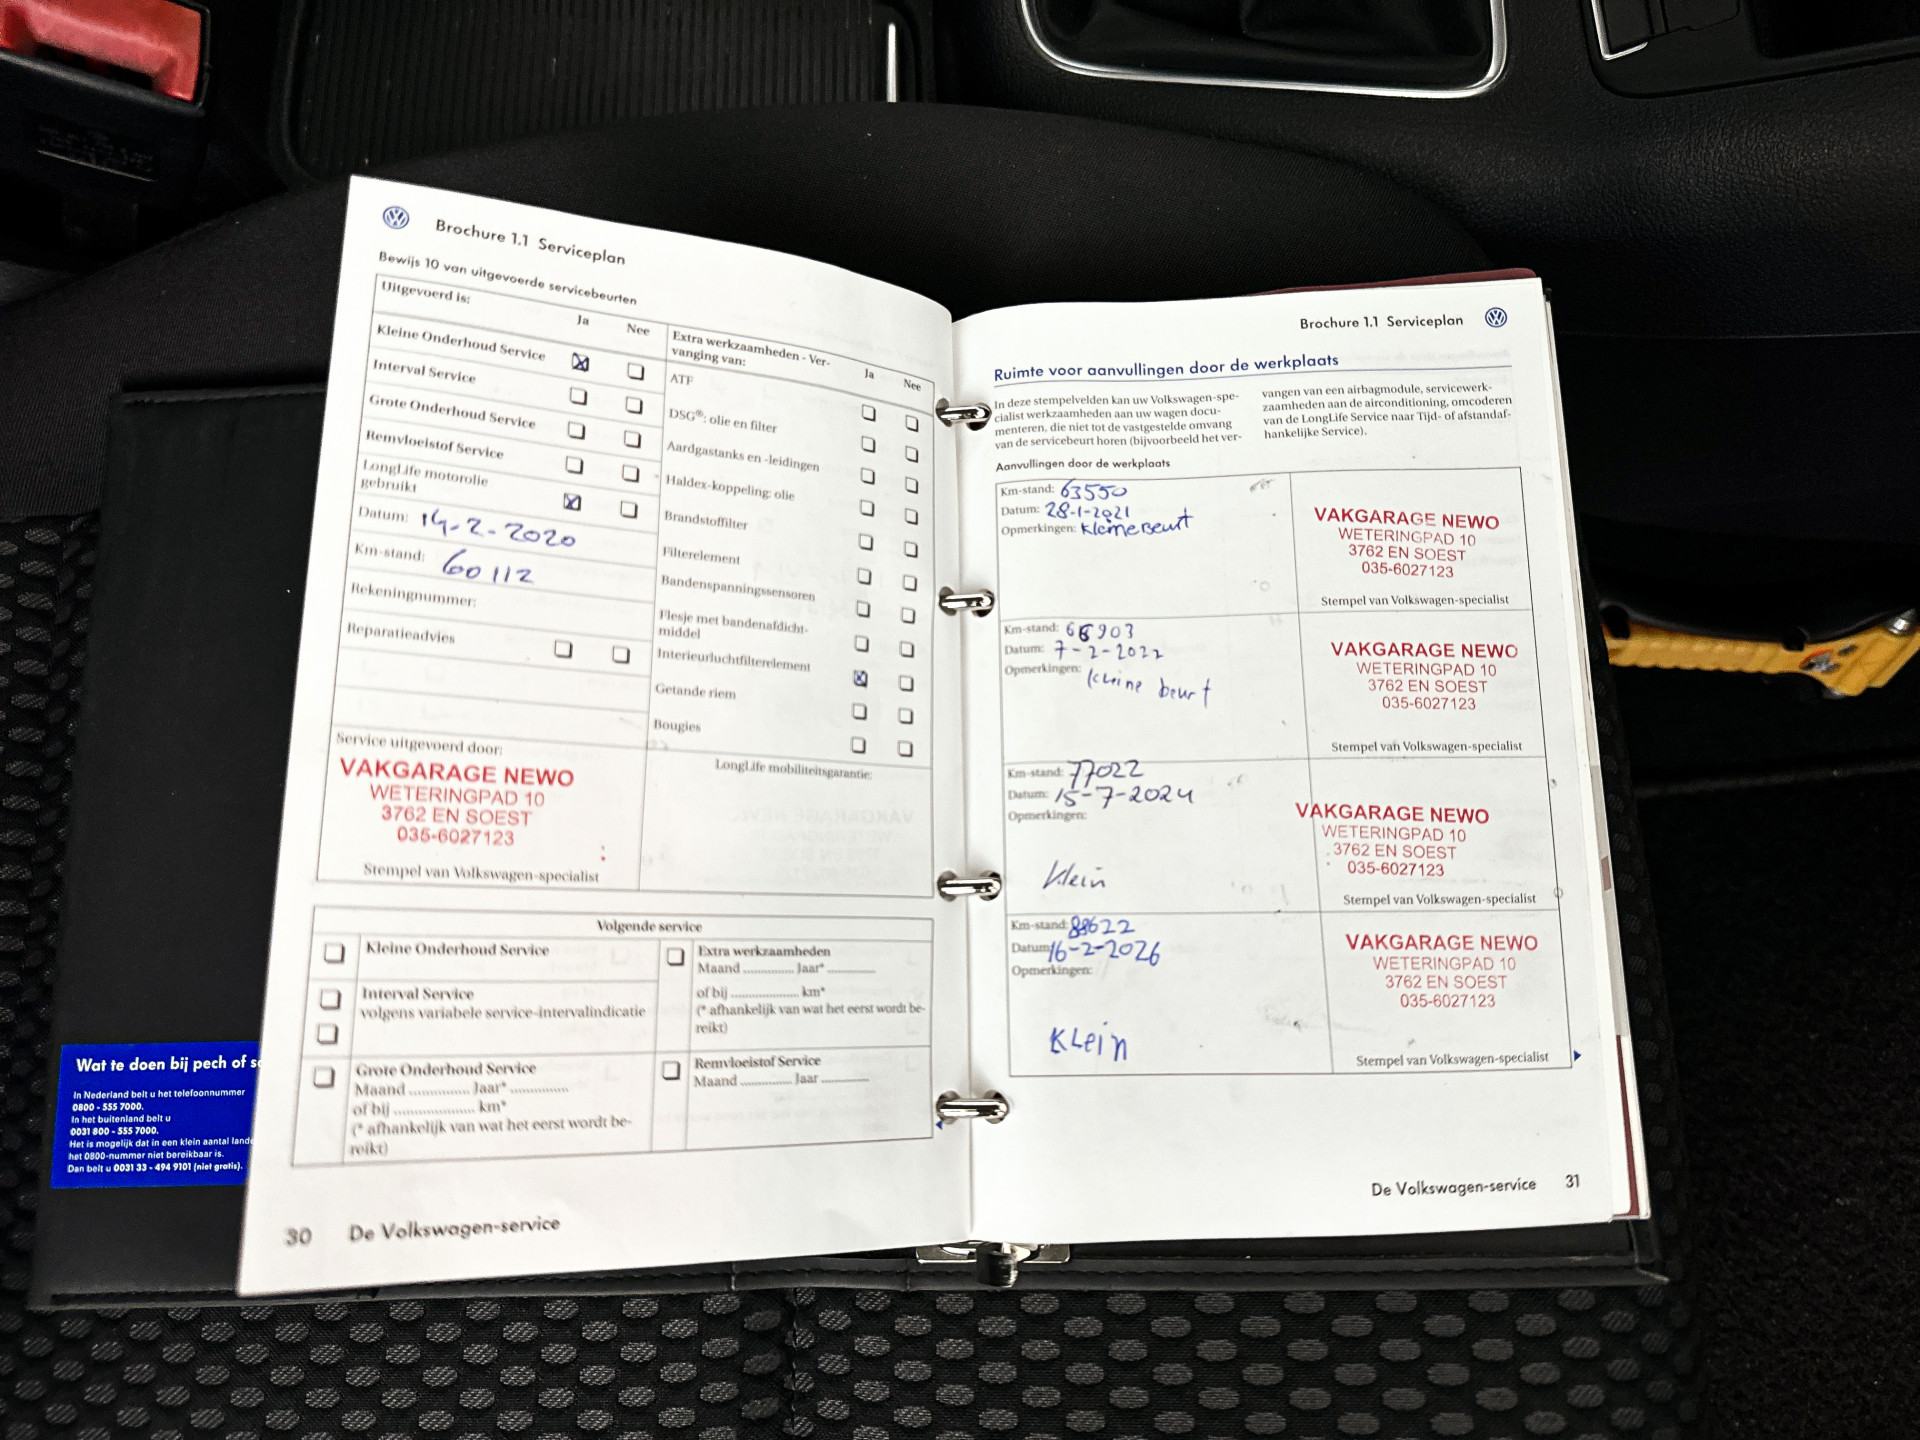 Brochure 1.1 Serviceplan
Bewijs 10 van uitgevoerde servicebeurten
Uitgevoerd is:
Ja Nee
Kleine Onderhoud Service
Interval Service
Grote Onderhoud Service
Remvloeistof Service
LongLife motorolie
gebruikt
Datum: 14-2-2020
Km-stand: 60112
Rekeningnummer:
Reparatieadvies
Extra werkzaamheden - Ver-
vanging van:
Ja Nee
ATF
DSG®: olie en filter
Aardgastanks en -leidingen
Haldex-koppeling: olie
Brandstoffilter
Filterelement
Bandenspanningssensoren
Flesje met bandenafdicht-
middel
Interieurluchtfilterelement
Getande riem
Bougies
Service uitgevoerd door:
VAKGARAGE NEWO
WETERINGPAD 10
3762 EN SOEST
035-6027123
Stempel van Volkswagen-specialist
LongLife mobiliteitsgarantie:
Volgende service
Kleine Onderhoud Service
Interval Service
volgens variabele service-intervalindicatie
Grote Onderhoud Service
Maand .............. Jaar* ..............
of bij .................... km*
(* afhankelijk van wat het eerst wordt be-
reikt)
Extra werkzaamheden
Maand .............. Jaar* .............
of bij .................. km*
(* afhankelijk van wat het eerst wordt be-
reikt)
Remvloeistof Service
Maand .............. Jaar .............
30 De Volkswagen-service
Brochure 1.1 Serviceplan
Ruimte voor aanvullingen door de werkplaats
In deze stempelvelden kan uw Volkswagen-spe-
cialist werkzaamheden aan uw wagen docu-
menteren, die niet tot de vastgestelde omvang
van de servicebeurt horen (bijvoorbeeld het ver-
vangen van een airbagmodule, servicewerk-
zaamheden aan de airconditioning, omcoderen
van de LongLife Service naar Tijd- of afstandaf-
hankelijke Service).
Aanvullingen door de werkplaats
Km-stand: 63550
Datum: 28-1-2021
Opmerkingen: Kleine Beurt
VAKGARAGE NEWO
WETERINGPAD 10
3762 EN SOEST
035-6027123
Stempel van Volkswagen-specialist
Km-stand:
Datum: 7-2-2022
Opmerkingen: kleine beurt
VAKGARAGE NEWO
WETERINGPAD 10
3762 EN SOEST
035-6027123
Stempel van Volkswagen-specialist
Km-stand: 77022
Datum: 15-7-2024
Opmerkingen:
Klein
VAKGARAGE NEWO
WETERINGPAD 10
3762 EN SOEST
035-6027123
Stempel van Volkswagen-specialist
Km-stand: 88622
Datum: 16-2-2026
Opmerkingen:
KLein
VAKGARAGE NEWO
WETERINGPAD 10
3762 EN SOEST
035-6027123
Stempel van Volkswagen-specialist
De Volkswagen-service 31
Wat te doen bij pech of
In Nederland belt u het telefoonnummer
0800 - 555 7000.
In het buitenland belt u
0031 800 - 555 7000.
Het is mogelijk dat in een klein aantal lande
het 0800-nummer niet bereikbaar is.
Dan belt u 0031 33 - 494 9101 (niet gratis).